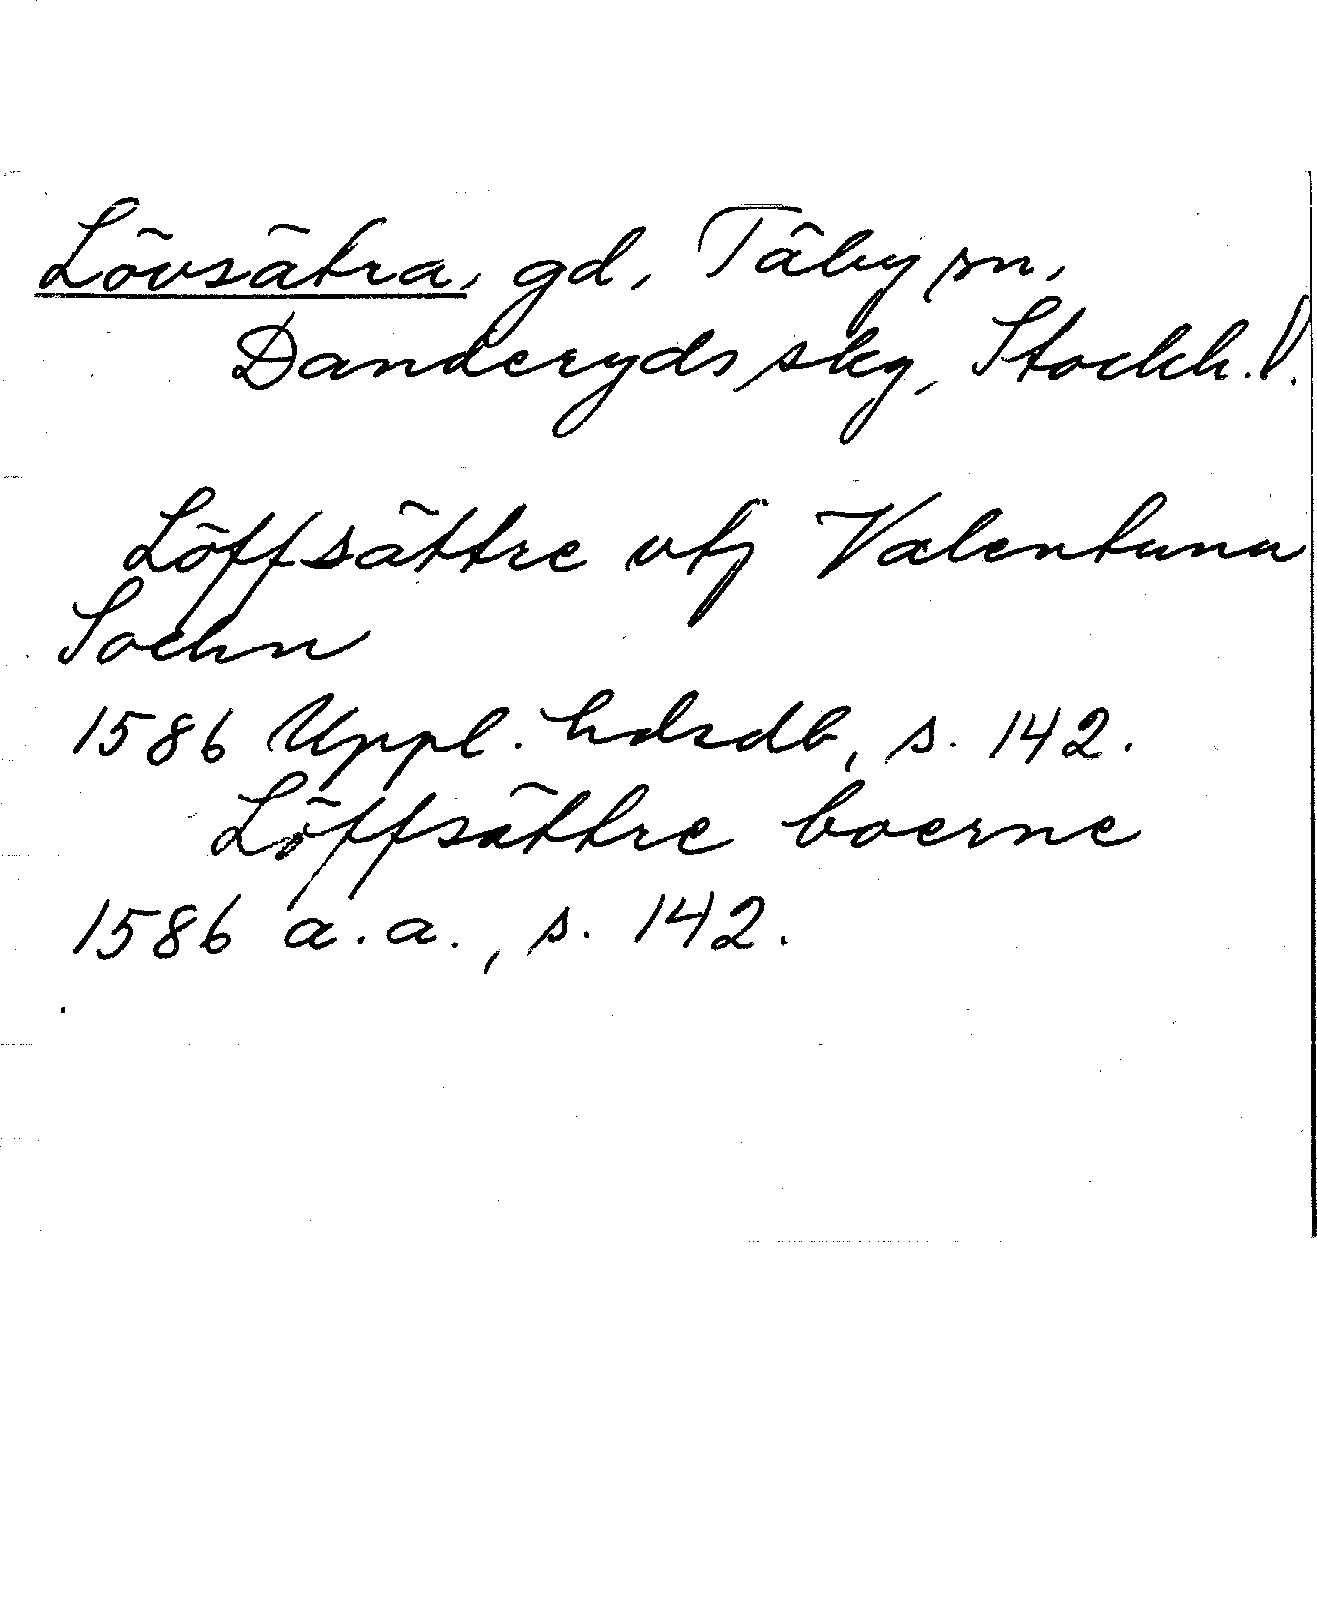 Lövsätra, gd, Täby sn,
Danderyds skg, Stockh. l.
Löffsättre vtj Valentuna
Sochn
1586 Uppl. hdrdb, s. 142.
Löffsättre boerne
1586 a.a., s. 142.